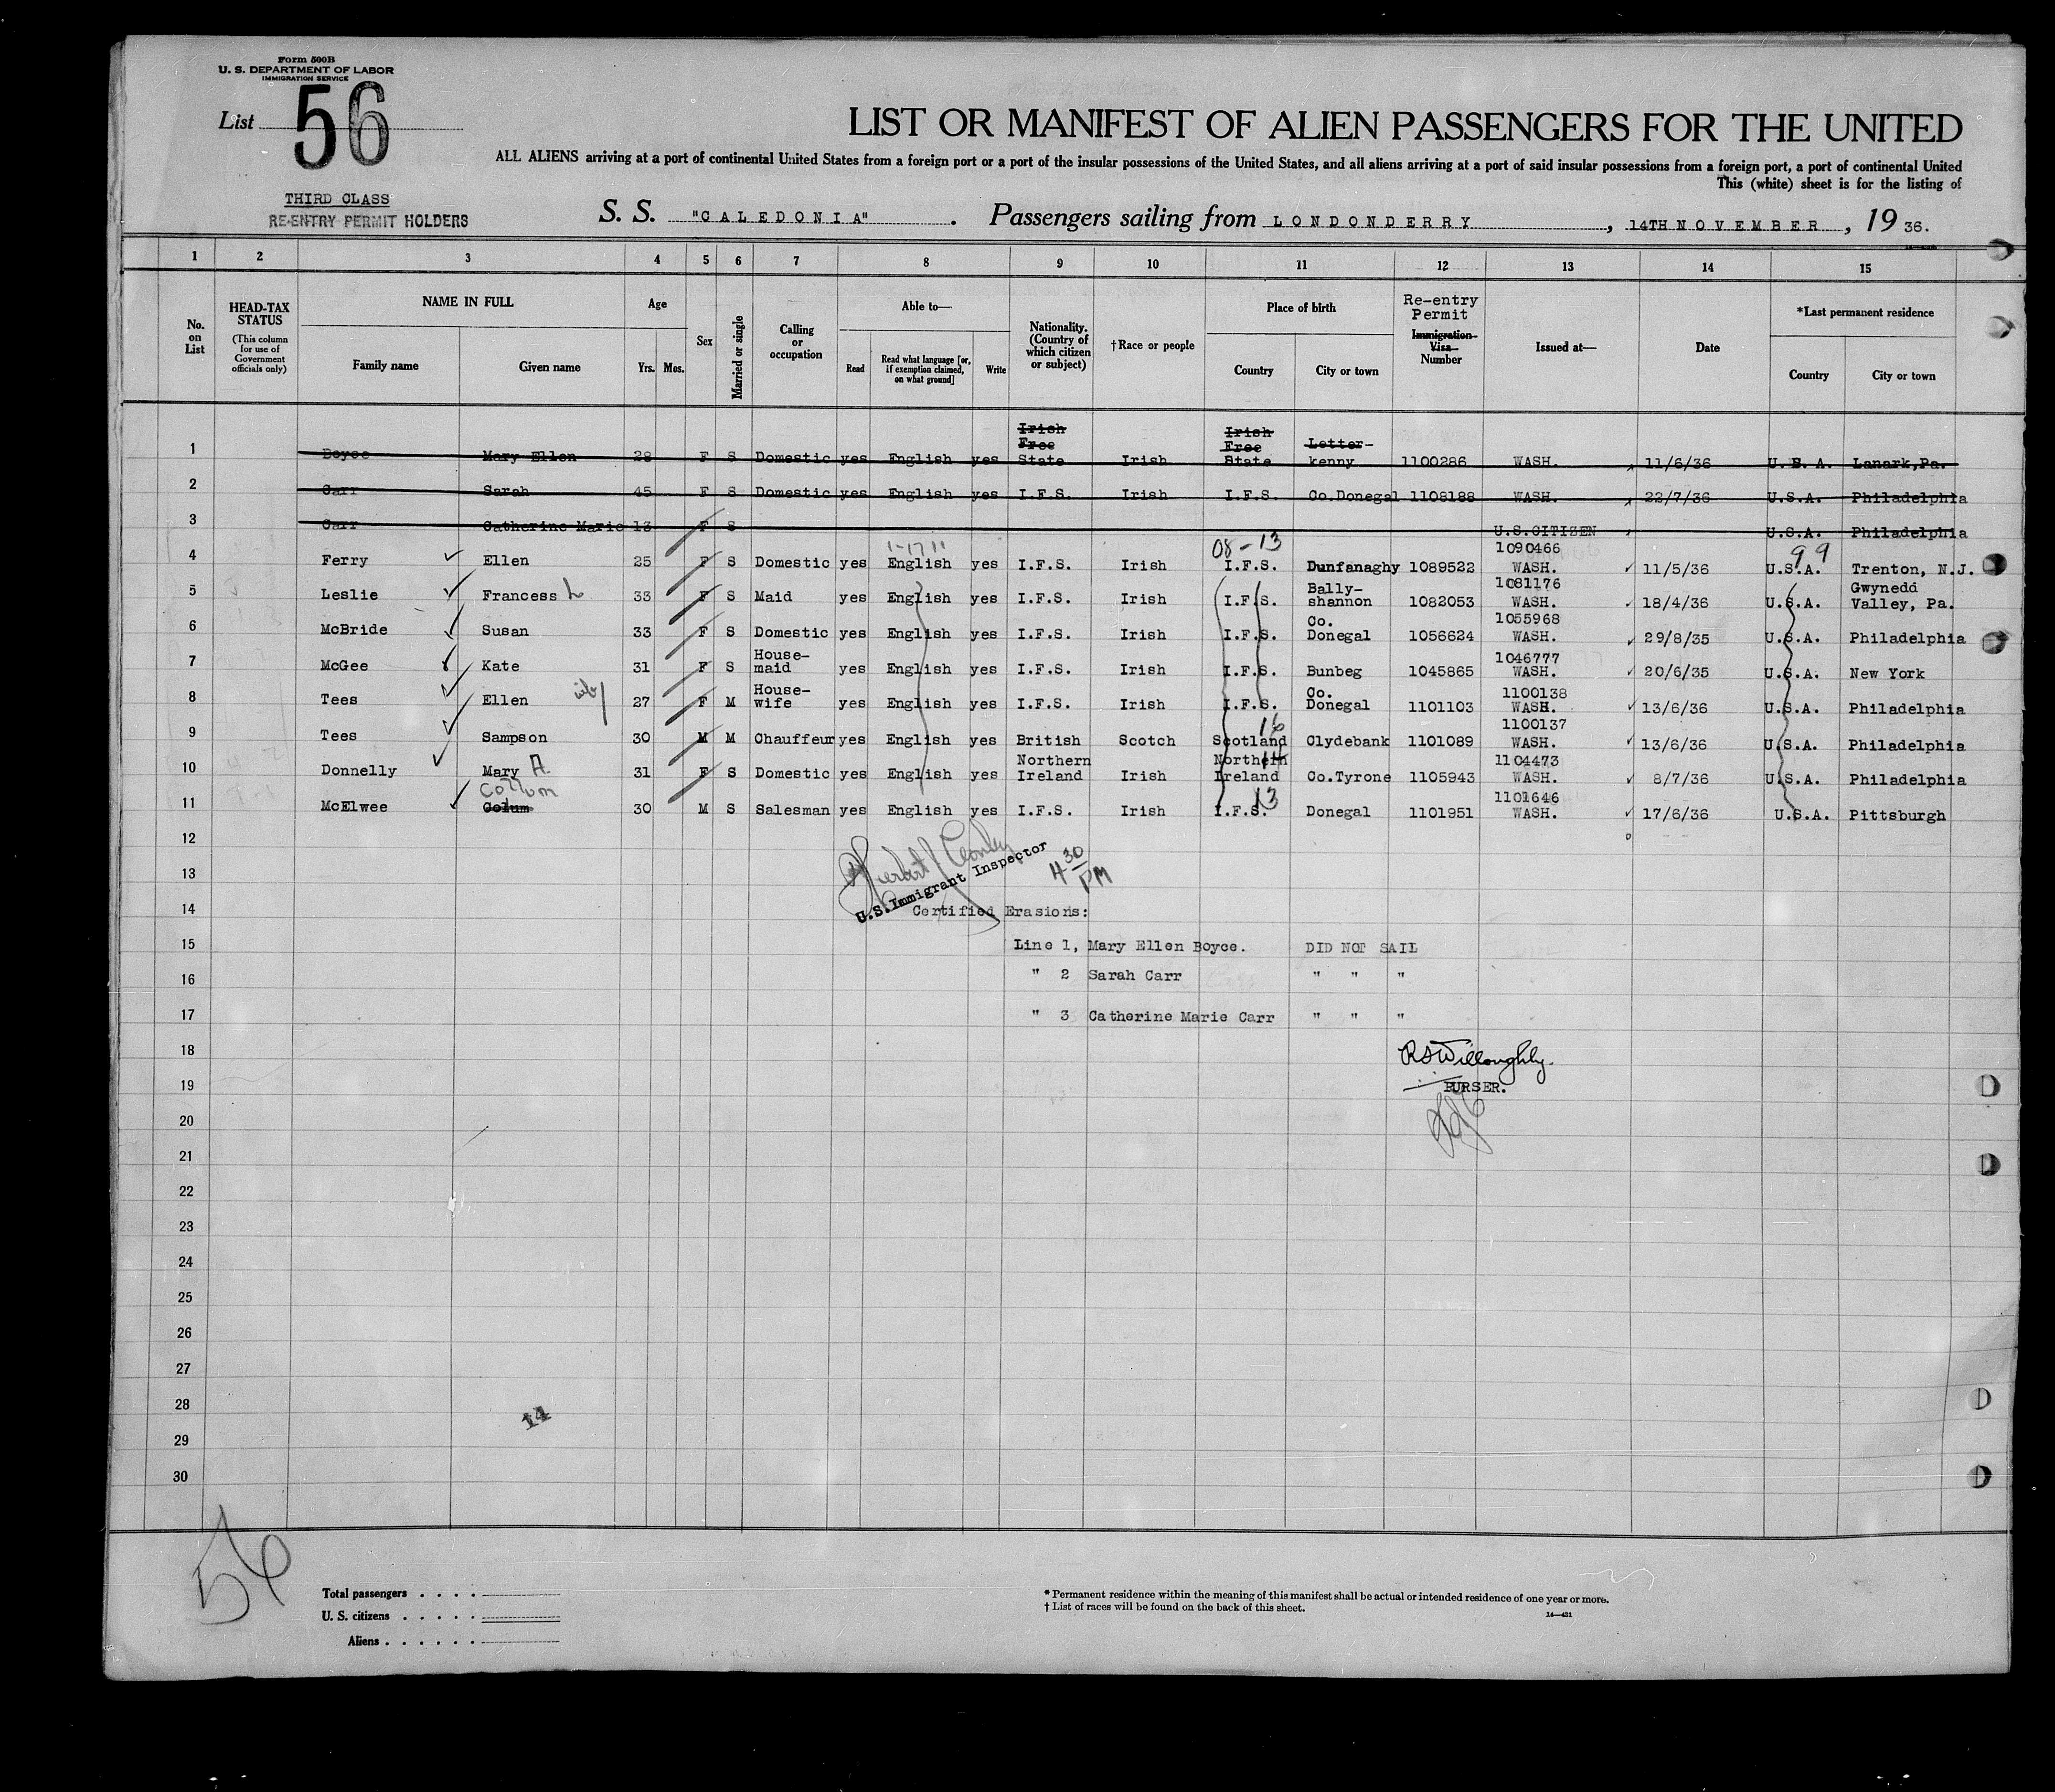 Form 500B
U. S. DEPARTMENT OF LABOR
IMMIGRATION SERVICE
List 56
LIST OR MANIFEST OF ALIEN PASSENGERS FOR THE UNITED
ALL ALIENS arriving at a port of continental United States from a foreign port or a port of the insular possessions of the United States, and all aliens arriving at a port of said insular possessions from a foreign port, a port of continental United
This (white) sheet is for the listing of
THIRD CLASS
RE-ENTRY PERMIT HOLDERS
S. S. "CALEDONIA" . Passengers sailing from LONDONDERRY , 14TH NOVEMBER , 19 36.
1 2 3 4 5 6 7 8 9 10 11 12 13 14 15
No. on List
HEAD-TAX STATUS
(This column for use of Government officials only)
NAME IN FULL
Family name Given name
Age
Yrs. Mos.
Sex
Married or single
Calling or occupation
Able to—
Read Read what language [or, if exemption claimed, on what ground] Write
Nationality. (Country of which citizen or subject)
†Race or people
Place of birth
Country City or town
Re-entry Permit
Immigration Visa Number
Issued at—
Date
*Last permanent residence
Country City or town
1 Boyce Mary Ellen 28 F S Domestic yes English yes Irish Free State Irish Irish Free State Letter-kenny 1100286 WASH. 11/6/36 U.S.A. Lanark,Pa.
2 Carr Sarah 45 F S Domestic yes English yes I.F.S. Irish I.F.S. Co.Donegal 1108188 WASH. 22/7/36 U.S.A. Philadelphia
3 Carr Catherine Marie 13 F S U.S.CITIZEN U.S.A. Philadelphia
1-17 11 08-13 1090466 99
4 Ferry Ellen 25 F S Domestic yes English yes I.F.S. Irish I.F.S. Dunfanaghy 1089522 WASH. 11/5/36 U.S.A. Trenton, N.J.
5 Leslie Francess L 33 F S Maid yes English yes I.F.S. Irish I.F.S. Bally-shannon 1082053 1081176 WASH. 18/4/36 U.S.A. Gwynedd Valley, Pa.
6 McBride Susan 33 F S Domestic yes English yes I.F.S. Irish I.F.S. Co. Donegal 1056624 1055968 WASH. 29/8/35 U.S.A. Philadelphia
7 McGee Kate 31 F S House-maid yes English yes I.F.S. Irish I.F.S. Bunbeg 1045865 1046777 WASH. 20/6/35 U.S.A. New York
8 Tees Ellen 27 F M House-wife yes English yes I.F.S. Irish I.F.S. Co. Donegal 1101103 1100138 WASH. 13/6/36 U.S.A. Philadelphia
9 Tees Sampson 30 M M Chauffeur yes English yes British Scotch Scotland 16 Clydebank 1101089 1100137 WASH. 13/6/36 U.S.A. Philadelphia
10 Donnelly Mary A. 31 F S Domestic yes English yes Northern Ireland Irish Northern Ireland 14 Co.Tyrone 1105943 1104473 WASH. 8/7/36 U.S.A. Philadelphia
Collum
11 McElwee Colum 30 M S Salesman yes English yes I.F.S. Irish I.F.S. 13 Donegal 1101951 1101646 WASH. 17/6/36 U.S.A. Pittsburgh
12
U.S. Immigrant Inspector
4 30 PM
13
14 Certified Erasions:
15 Line 1, Mary Ellen Boyce. DID NOT SAIL
16 " 2 Sarah Carr " " "
17 " 3 Catherine Marie Carr " " "
18 RSWilloughby.
19 PURSER.
20
21
22
23
24
25
26
27
28
14
29
30
56
Total passengers . . . .
U. S. citizens . . . . .
Aliens . . . . . .
* Permanent residence within the meaning of this manifest shall be actual or intended residence of one year or more.
† List of races will be found on the back of this sheet.
14—421